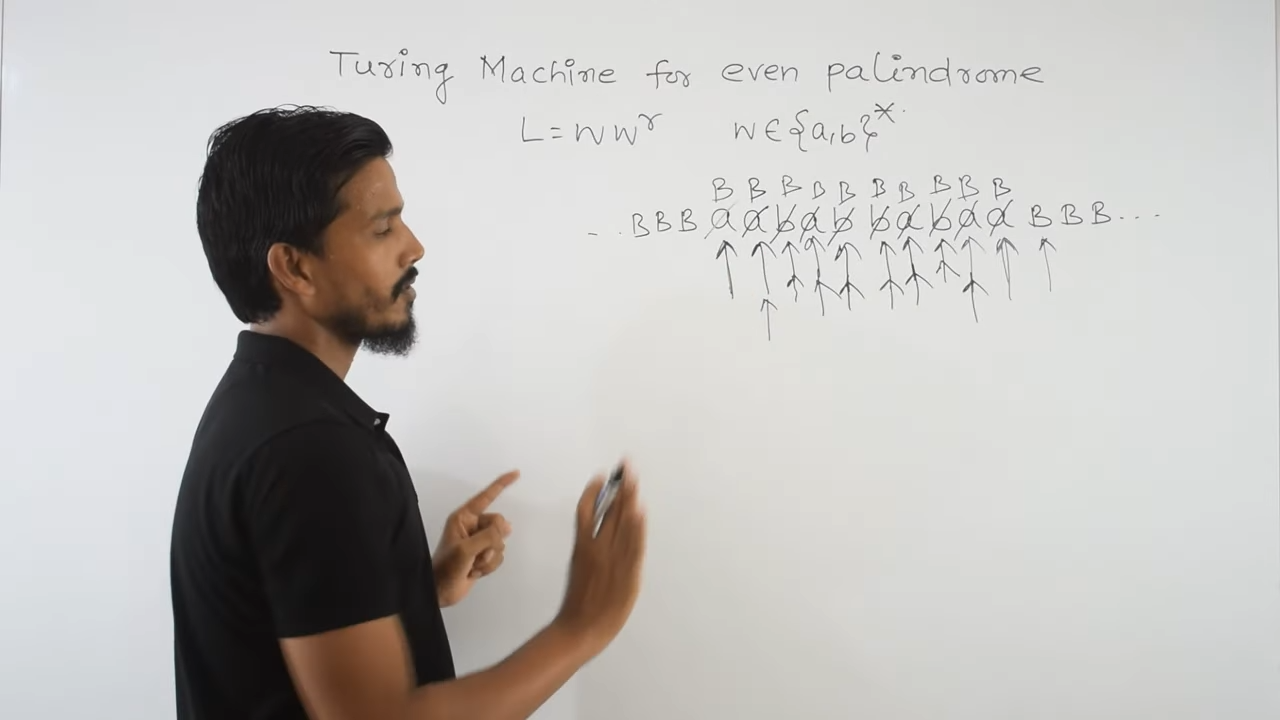 Turing Machine for even palindrome
L = w wʳ w ∈ {a,b}*
B B B B B B B B B B
- . . B B B a a b a b b a b a a B B B . . .